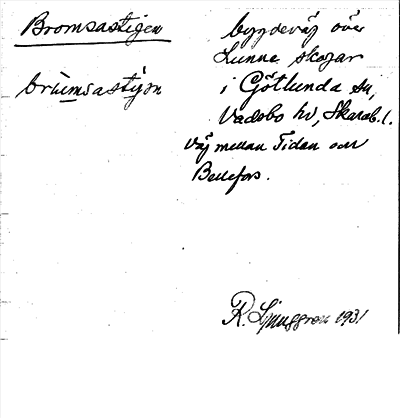 Bromsastigen
brùmsastı̀ɡɔn
bygdeväg över
Lunne skogar
i Götlunda sn,
Vadsbo hd, Skarab. l.
Väj mellan Tidan och
Bellefors.
R. Ljunggren 1931